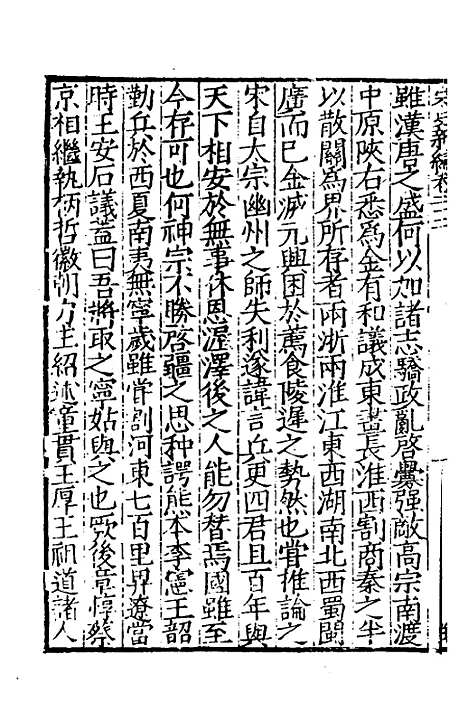 宋史新編卷二十二
雖漢唐之盛何以加諸志驕政亂啓釁强敵高宗南渡
中原陜右悉爲金有和議成東畫長淮西割商秦之半
以散關爲界所存者兩浙兩淮江東西湖南北西蜀閩
廣而已金滅元興困於薦食陵遲之勢然也嘗推論之
宋自大宗幽州之師失利遂諱言兵更四君且百年與
天下相安於無事休恩渥澤後之人能勿替焉國雖至
今存可也何神宗不勝啓疆之思种諤熊本李憲王韶
勤兵於西夏南夷無寧歲雖嘗割河東七百里畀遼當
時王安石議蓋曰吾將取之寧姑與之也厥後章惇蔡
京相繼執柄哲徽朝力主紹述童貫王厚王祖道諸人